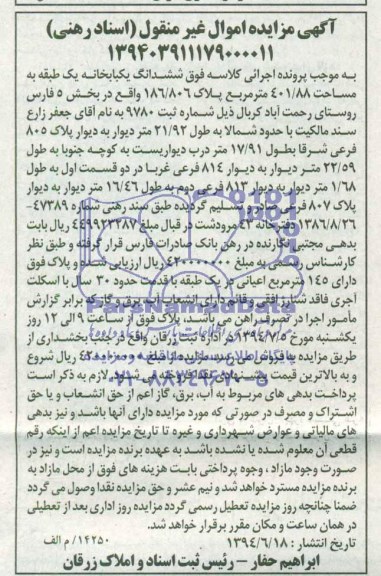 آگهی مزایده اموال غیر منقول (اسناد رهنی)
۱۳۹۴۰۳۹۱۱۱۷۹۰۰۰۰۱۱
به موجب پرونده اجرائی کلاسه فوق ششدانگ یکبابخانه یک طبقه به
مساحت ۴۰۱/۸۸ مترمربع پلاک ۱۸۶/۸۰۶ واقع در بخش ۵ فارس
روستای رحمت آباد کربال ذیل شماره ثبت ۹۷۸۰ به نام آقای جعفر زارع
سند مالکیت با حدود شمالا به طول ۲۱/۹۲ متر دیوار به دیوار پلاک ۸۰۵
فرعی شرقا بطول ۱۷/۹۱ متر درب دیواریست به کوچه جنوبا به طول
۲۲/۵۹ متر دیوار به دیوار ۸۱۴ فرعی غربا در دو قسمت اول به طول
۱/۶۸ متر دیوار به دیوار ۸۱۳ فرعی دوم به طول ۱۶/۴۶ متر دیوار به دیوار
پلاک ۸۰۷ فرعی تسلیم گردیده طبق سند رهنی شماره ۴۷۳۸۹-
۱۳۸۶/۸/۲۶ دفترخانه ۴۳ مرودشت در قبال مبلغ ۴۴۹۹۲۲۲۸۷ ریال بابت
بدهی مجتبی نگارنده در رهن بانک صادرات فارس قرار گرفته و طبق نظر
کارشناس رسمی به مبلغ ۴۲۰۰۰۰۰۰۰ ریال ارزیابی شده و پلاک فوق
دارای ۱۴۵ مترمربع اعیانی در یک طبقه با قدمت حدود ۳۰ سال با اسکلت
آجری فاقد شناژ افقی و قائم دارای انشعاب آب، برق و گاز که برابر گزارش
مامور اجرا در تصرف راهن می باشد، پلاک فوق از ساعت ۹ الی ۱۲ روز
یکشنبه مورخ ۱۳۹۴/۷/۵ در اداره ثبت زرقان واقع در جنب بخشداری از
طریق مزایده به فروش می رسد. مزایده از مبلغ ۴۲۰۰۰۰۰۰۰ ریال شروع
و به بالاترین قیمت پیشنهادی نقدا فروخته می شود. لازم به ذکر است
پرداخت بدهی های مربوط به آب، برق، گاز اعم از حق انشعاب و یا حق
اشتراک و مصرف در صورتی که مورد مزایده دارای آنها باشد و نیز بدهی
های مالیاتی و عوارض شهرداری و غیره تا تاریخ مزایده اعم از اینکه رقم
قطعی آن معلوم شده یا نشده باشد به عهده برنده مزایده است و نیز در
صورت وجود مازاد، وجوه پرداختی بابت هزینه های فوق از محل مازاد به
برنده مزایده مسترد خواهد شد و نیم عشر و حق مزایده نقدا وصول می گردد
ضمنا چنانچه روز مزایده تعطیل رسمی گردد مزایده روز اداری بعد از تعطیلی
در همان ساعت و مکان مقرر برقرار خواهد شد.
تاریخ انتشار : ۱۳۹۴/۶/۱۸ ۱۴۲۵۰/م الف
ابراهیم حفار – رئیس ثبت اسناد و املاک زرقان
ParsNamadData
۰۲۱-۸۸۳۴۹۶۷۰-۵